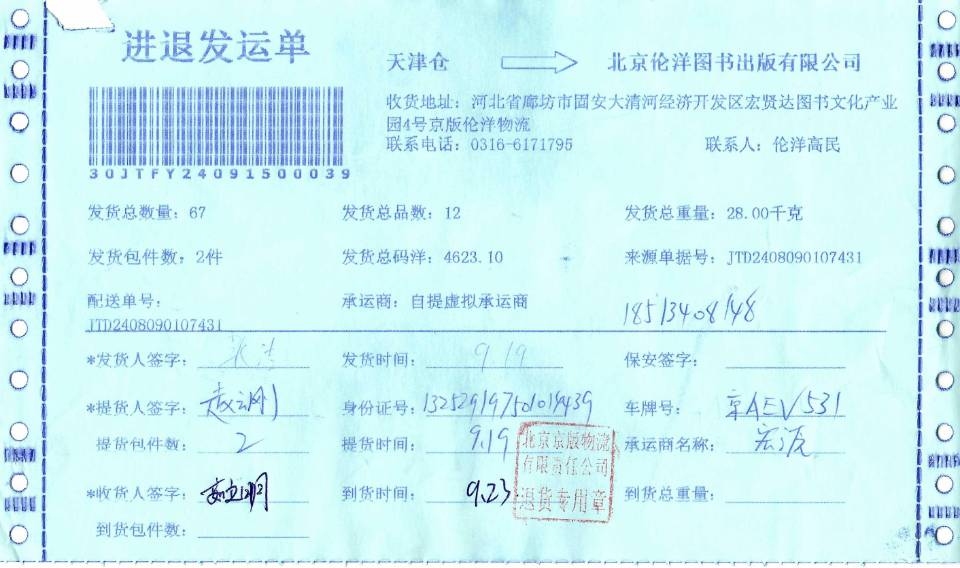 进退发运单
天津仓
北京伦洋图书出版有限公司
收货地址：河北省廊坊市固安大清河经济开发区宏贤达图书文化产业
园4号京版伦洋物流
联系电话：0316-6171795 联系人：伦洋高民
30JTFY24091500039
发货总数量：67 发货总品数：12 发货总重量：28.00千克
发货包件数：2件 发货总码洋：4623.10 来源单据号：JTD2408090107431
配送单号： 承运商：自提虚拟承运商 18513408148
JTD2408090107431
*发货人签字： 发货时间：9.19 保安签字：
*提货人签字： 身份证号： 车牌号：京AEV531
提货包件数：2 提货时间：9.19 承运商名称：宏源
*收货人签字： 到货时间：9.23 到货总重量：
到货包件数：
北京京版物流
有限责任公司
退货专用章